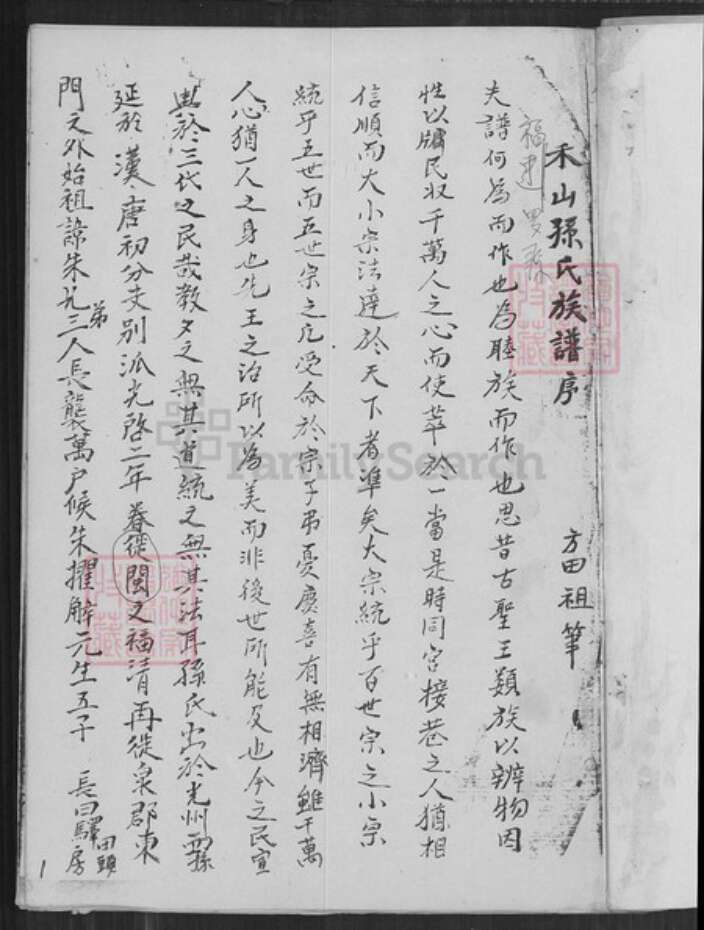 禾山孫氏族譜序 方田祖筆
福建
夫譜何為而作也為睦族而作也思昔古聖王類族以辨物因
性以牖民収千萬人之心而使萃於一當是時同宮接巷之人猶相
信順而大小宗法達於天下者準矣大宗統乎百世宗之小宗
統乎五世而五世宗之凡受命於宗子弔憂慶喜有無相濟雖千萬
人心猶一人之身也先王之治所以為美而非後世所能及也今之民豈
異於三代之民哉教夕之無其道統之無其法耳孫氏出於光州
延於漢唐初分支別派光啓二年眷徙閩之福清再徙泉郡東
門之外始祖諒朱兄弟三人長襲萬戶候朱擢解元生五子 長曰驛田頭房
FamilySearch
1